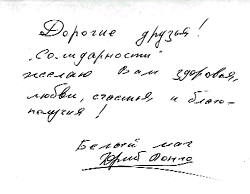 Дорогие друзья!
"Солидарности"
желаю Вам здоровья,
любви, счастья, и благо-
получия!
Белый маг
Юрий